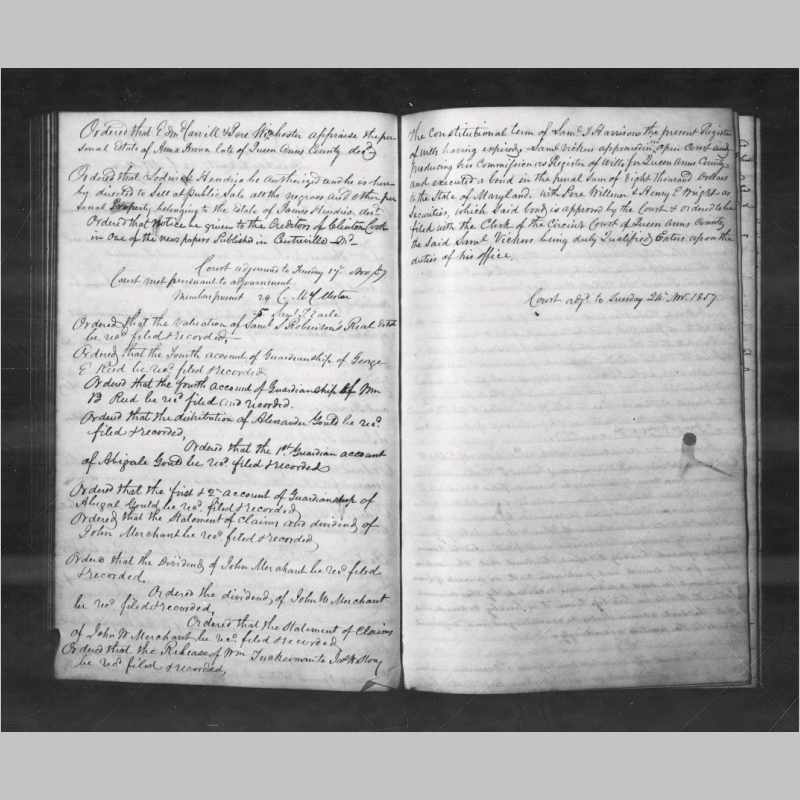 Ordered that E Dm Harrill & Pere Winchester appraise the per-
sonal Estate of Anna Brown late of Queen Anns County decd
Ordered that Hendrix be Authorized and he is here
by directed to Sell at Public Sale all the negroes And other per
sonal Property belonging to the Estate of James Hendrix decd
Ordered that Notice be given to the Creditors of Clinton Cook
in one of the newspapers Published in Centreville Md
Court adjourned to Tuesday 17th Novr 57
Court met pursuant to adjournment
Members present
Ordered that the Valuation of Saml S Robinson's Real Estate
be recd filed & recorded,
Ordered that the Fourth account of Guardianship of George
E Reed be recd filed & recorded
Ordered that the fourth account of Guardianship of Wm
B Reed be recd filed and recorded.
Ordered that the distribution of Alexander Gould be recd
filed & recorded
Ordered that the 1st Guardian account
of Abigale Gould be recd filed & recorded
Ordered that the first & 2nd account of Guardianship of
Abigal Gould be recd filed & recorded
Ordered that the Statement of Claims and dividend of
John Merchant be recd filed & recorded
Ordered that the Dividend of John Merchant be recd filed
& recorded.
Ordered the dividend, of John W Merchant
be recd filed & recorded,
Ordered that the Statement of Claims
of John W Merchant be recd filed & recorded
Ordered that the Release of Wm Tuckerman to
be recd filed & recorded,
The Constitutional term of Saml T Harrison the present Register
of wills having expired, Saml Vickers appeared in open Court and
producing his Commission as Register of Wills for Queen Anns County
and executed a bond in the penal Sum of Eight Thousand dollars
to the State of Maryland. with Pere Wilmer & Henry E Wright as
Securities, which Said bond is approved by the Court & ordered to be
filed with the Clerk of the Circuit Court of Queen Anns County
the Said Saml Vickers being duly Qualified Enters upon the
duties of his office.
Court adjd to Tuesday 24th Nov. 1857